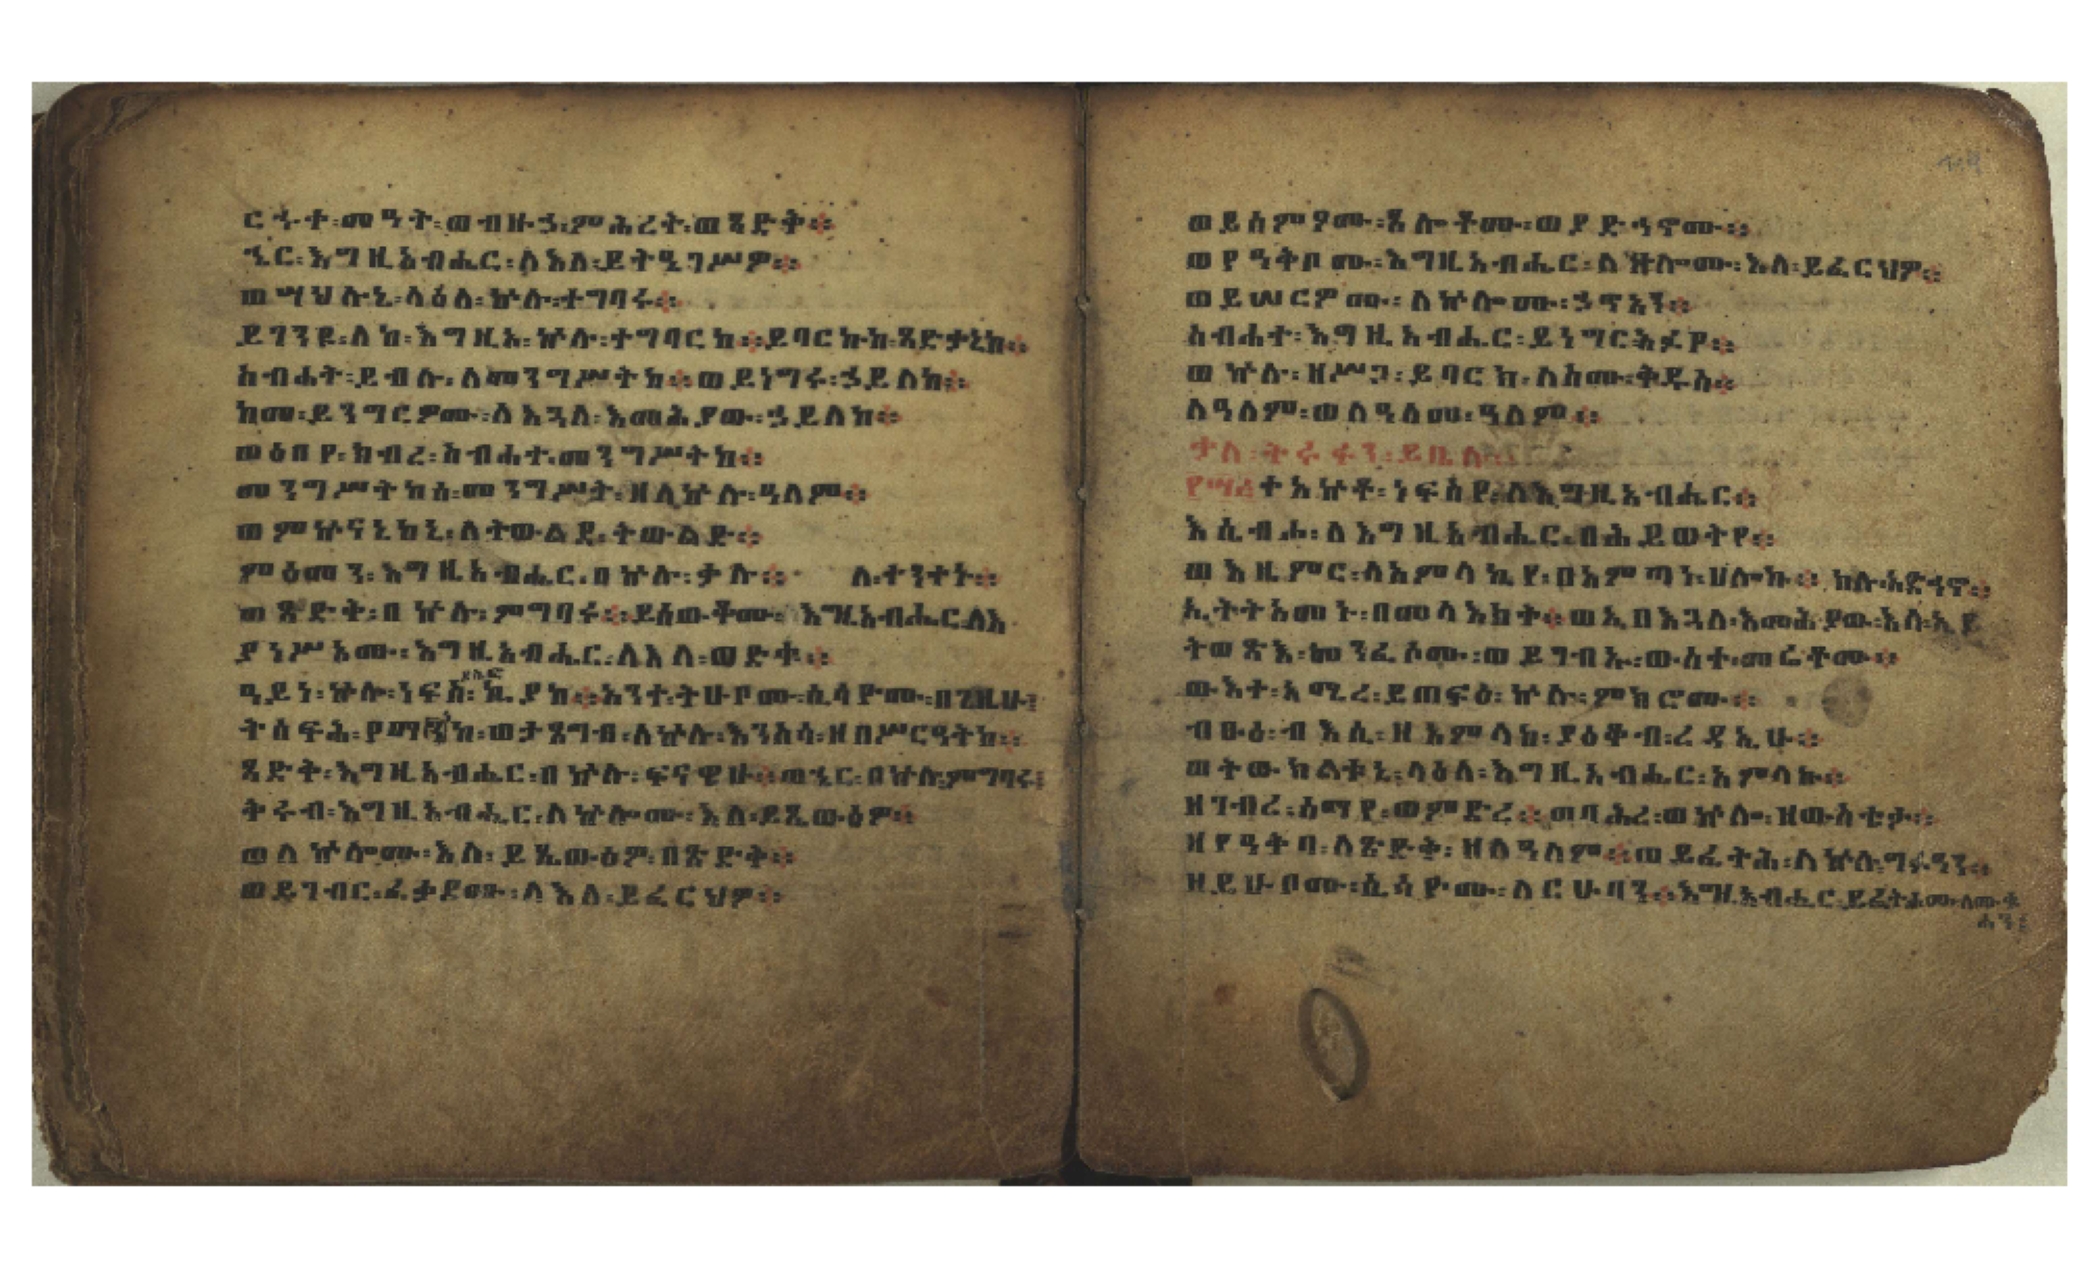 ርኁቀ፡መዓት፡ወብዙኃ፡ምሕረት፡ወጻድቅ፨
ኄር፡እግዚአብሔር፡ለእለ፡ይትዔገሥዎ፨
ወሣህሉኒ፡ላዕለ፡ኵሉ፡ተግባሩ፨
ይገንዩ፡ለከ፡እግዚኦ፡ኵሉ፡ተግባርከ፨ይባርኩከ፡ጻድቃኒከ፨
ስብሐት፡ይብሉ፡ለመንግሥትከ፨ወይነግሩ፡ኃይለከ፨
ከመ፡ይንግርዎሙ፡ለእጓለ፡እመሕያው፡ኃይለከ፨
ወዕበየ፡ክብረ፡ስብሐተ፡መንግሥትከ፨
መንግሥትከሰ፡መንግሥት፡ዘለኵሉ፡ዓለም፨
ወምኵናኒከኒ፡ለትውልደ፡ትውልድ፨
ምዕመን፡እግዚአብሔር፡በኵሉ፡ቃሉ፨
ወጽድቅ፡በኵሉ፡ምግባሩ፨ይሰውቆሙ፡እግዚአብሔር፡ለእ
ያነሥኦሙ፡እግዚአብሔር፡ለእለ፡ወድቁ፨
ዓይነ፡ኵሉ፡ነፍስ፡ኪያከ፨አንተ፡ትሁቦሙ፡ሲሳዮሙ፡በጊዜሁ፤
ትሰፍሕ፡የማንከ፡ወታጸግብ፡ለኵሉ፡እንስሳ፡ዘበሥርዓትከ፨
ጻድቅ፡እግዚአብሔር፡በኵሉ፡ፍናዊሁ፨ወኄር፡በኵሉ፡ምግባሩ፤
ቅሩብ፡እግዚአብሔር፡ለኵሎሙ፡እለ፡ይጼውዕዎ፨
ወለኵሎሙ፡እለ፡ይጼውዕዎ፡በጽድቅ፨
ወይገብር፡ፈቃዶሙ፡ለእለ፡ይፈርህዎ፨
ወይሰምዖሙ፡ጸሎቶሙ፡ወያድኅኖሙ፨
ወየዓቅቦሙ፡እግዚአብሔር፡ለኵሎሙ፡እለ፡ይፈርህዎ፨
ወይሤርዎሙ፡ለኵሎሙ፡ኃጥኣን፨
ስብሐተ፡እግዚአብሔር፡ይነግር፡አፉየ፨
ወኵሉ፡ዘሥጋ፡ይባርክ፡ለስሙ፡ቅዱስ፨
ለዓለም፡ወለዓለመ፡ዓለም፨
ተአኵቶ፡ነፍስየ፡ለእግዚአብሔር፨
እሴብሖ፡ለእግዚአብሔር፡በሕይወትየ፨
ወእዜምር፡ለአምላኪየ፡በአምጣነ፡ሀሎኩ፨
ኢትትአመኑ፡በመላእክት፨ወኢበእጓለ፡እመሕያው፡እለ፡ኢይ
ትወጽእ፡መንፈሶሙ፡ወይገብኡ፡ውስተ፡መሬቶሙ፨
ውእተ፡አሚረ፡ይጠፍዕ፡ኵሉ፡ምክሮሙ፨
ብፁዕ፡ብእሲ፡ዘአምላከ፡ያዕቆብ፡ረዳኢሁ፨
ወትውክልቱኒ፡ላዕለ፡እግዚአብሔር፡አምላኩ፨
ዘገብረ፡ሰማየ፡ወምድረ፨ወባሕረ፡ወኵሎ፡ዘውስቴታ፨
ዘየዓቅባ፡ለጽድቅ፡ዘለዓለም፨ወይፈትሕ፡ለኵሉ፡ግፉዓን፨
ዘይሁቦሙ፡ሲሳዮሙ፡ለርሁባን፨እግዚአብሔር፡ይፈትሖሙ፡ለሙቁ
ሓን፤